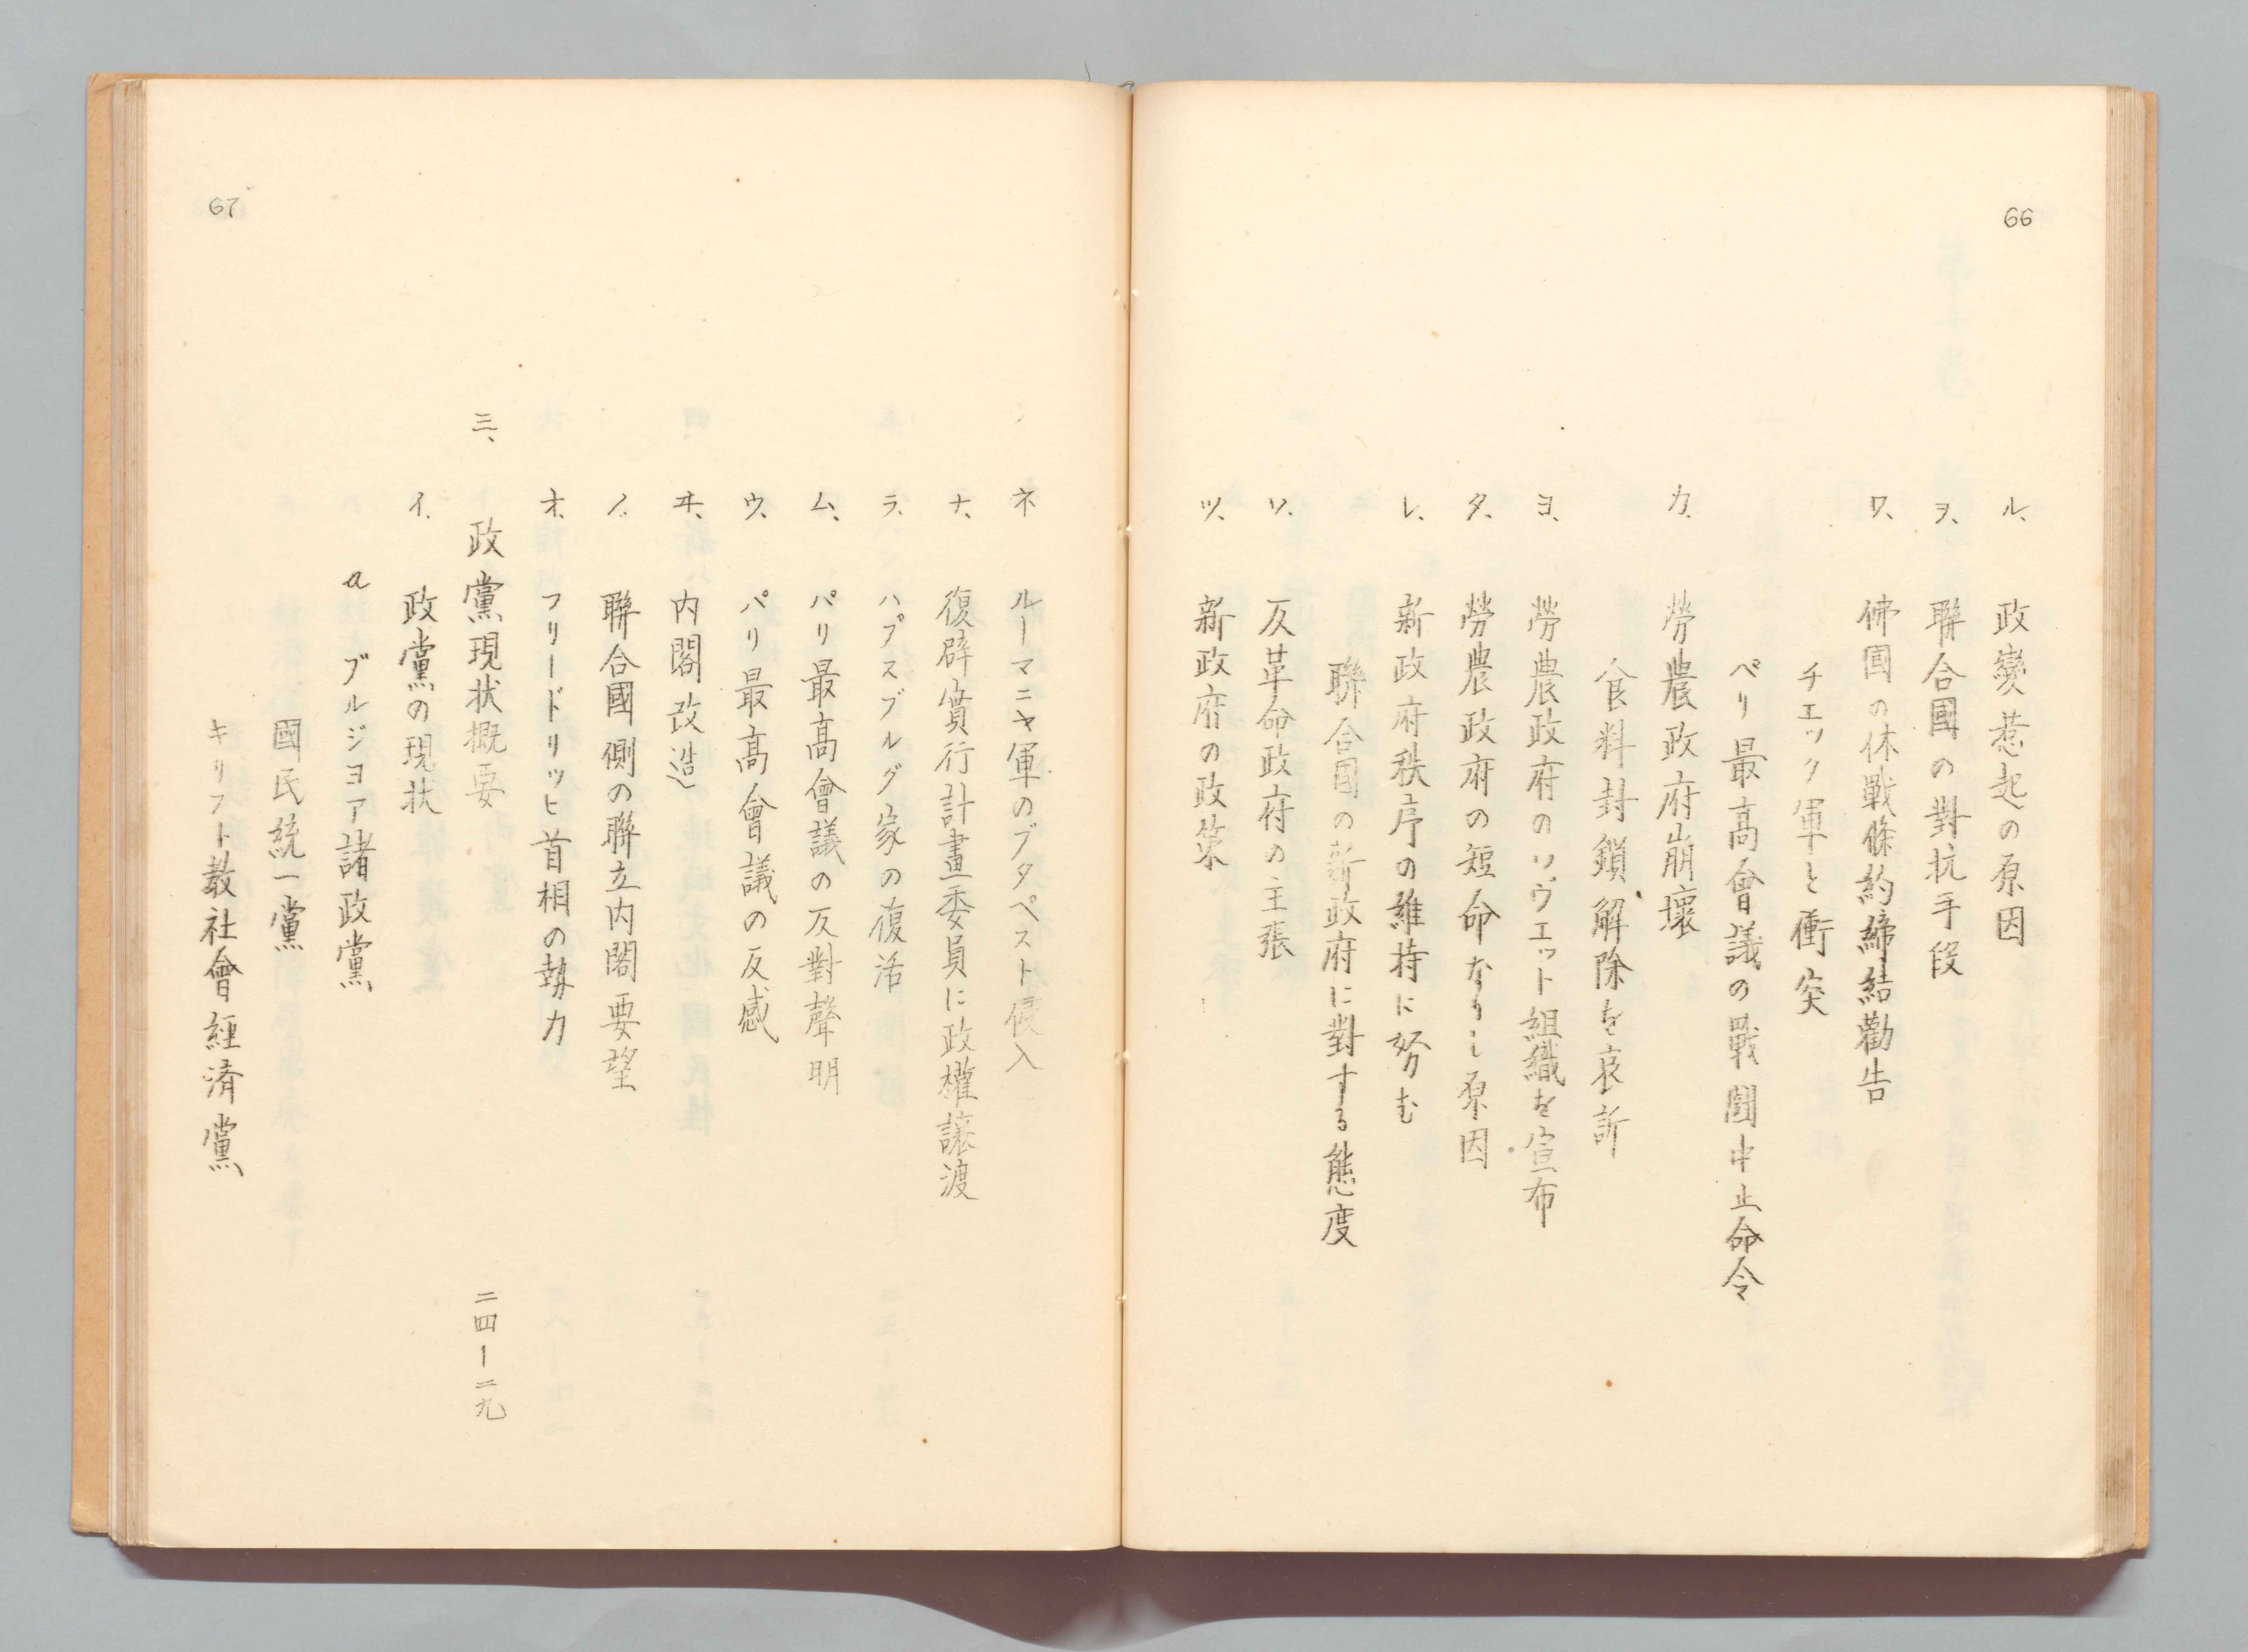 66
ル、 政變惹起の原因
ヲ、 聯合國の對抗手段
ワ、 佛国の休戰條約締結勸告
チエック軍と衝突
パリ最高會議の戰鬪中止命令
カ、 勞農政府崩壞
食料封鎖解除を哀訴
ヨ、 勞農政府のソヴエット組織を宣布
タ、 勞農政府の短命なりし原因
レ、 新政府秩序の維持に努む
聯合国の新政府に對する態度
ソ、 反革命政府の主張
ツ、 新政府の政策
67
ネ ルーマニヤ軍のブタペスト侵入
ナ、 復辟實行計畫委員に政權讓渡
ラ、 ハプスブルグ家の復活
ム、 パリ最高會議の反對聲明
ウ、 パリ最高會議の反感
ヰ、 内閣改造
ノ、 聯合國側の聯立内閣要望
オ、 フリードリッヒ首相の勢力
三、 政黨現状概要 二四ー二九
イ、 政黨の現状
a ブルジヨア諸政黨
國民統一黨
キリスト教社會經済黨